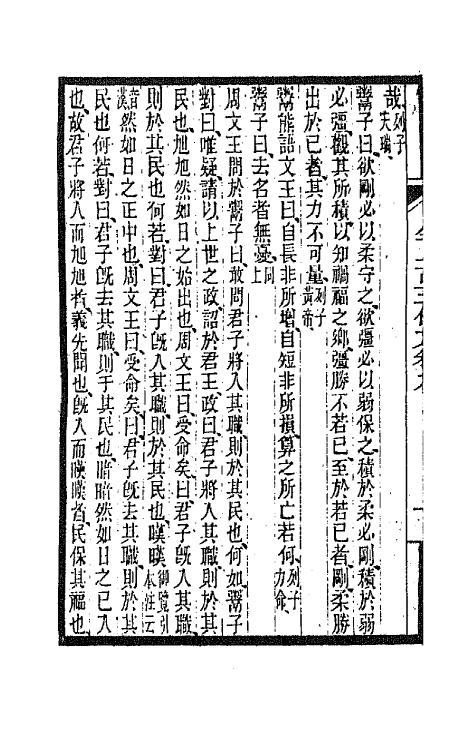 哉列子天瑞
鬻子曰欲剛必以柔守之欲彊必以弱保之積於柔必剛積於弱
必彊觀其所積以知禍福之鄉彊勝不若己至於若己者剛柔勝
出於己者其力不可量列子黃帝
鬻熊語文王曰自長非所增自短非所損算之所亡若何列子力命
鬻子曰去名者無憂同上
周文王問於鬻子曰敢問君子將入其職則於其民也何如鬻子
對曰唯疑請以上世之政詔於君王政曰君子將入其職則於其
民也旭旭然如日之始出也周文王曰受命矣曰君子旣入其職
則於其民也何若對曰君子旣入其職則於其民也暵暵御覽引本注云
音漢然如日之正中也周文王曰受命矣曰君子旣去其職則於其
民也何若對曰君子旣去其職則于其民也暗暗然如日之已入
也故君子將入而旭旭者義先聞也旣入而暵暵者民保其福也